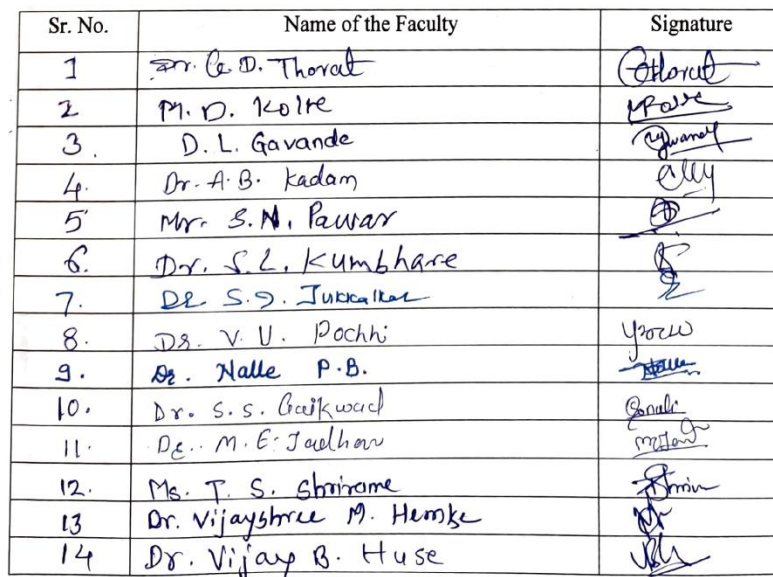 Sr. No. Name of the Faculty Signature
1 Dr. G. D. Thorat Thorat
2 M. D. Kolte
3. D. L. Gavande
4. Dr. A. B. Kadam
5 Mr. S. N. Pawar
6. Dr. S. L. Kumbhare
7. Dr S. D. Jukkalkar
8. Dr. V. U. Pochhi
9. Dr. Nalle P.B. Nalle
10. Dr. S. S. Gaikwad Sonali
11. Dr. M. E. Jadhav
12. Ms. T. S. Shrirame
13 Dr. Vijayshree M. Hemke
14 Dr. Vijay B. Huse